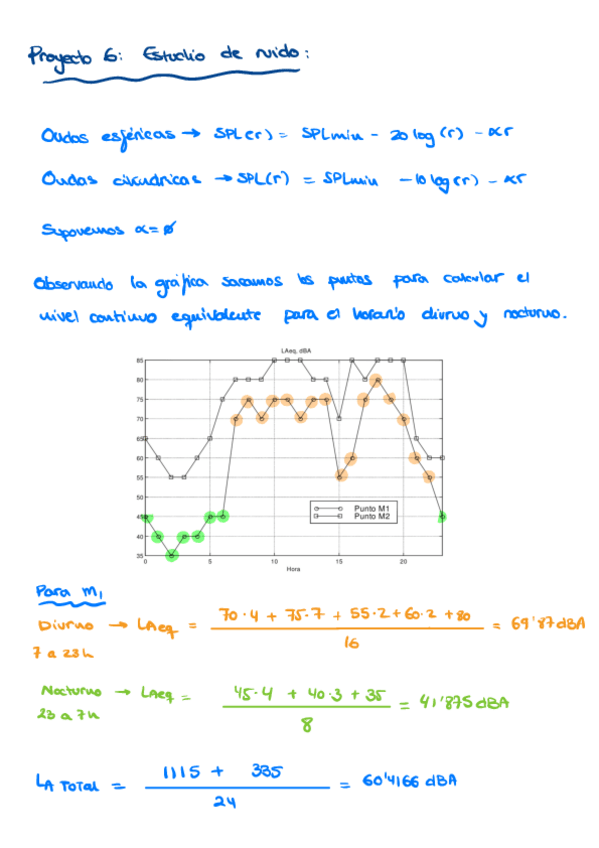 Proyecto 6: Estudio de ruido:
Ondas esféricas → SPL(r) = SPLmin - 20 log (r) - αr
Ondas cilíndricas → SPL(r) = SPLmin - 10 log(r) - αr
Suponemos α = ∅
Observando la gráfica sacamos los puntos para calcular el
nivel continuo equivalente para el horario diurno y nocturno.
LAeq, dBA
85
80
75
70
65
60
55
50
45
40
35
Punto M1
Punto M2
0 5 10 15 20
Hora
Para M1
Diurno → LAeq = 70·4 + 75·7 + 55·2 + 60·2 + 80 / 16 = 69'87 dBA
7 a 23h
Nocturno → LAeq = 45·4 + 40·3 + 35 / 8 = 41'875 dBA
23 a 7h
LA TOTAL = 1115 + 335 / 24 = 60'4166 dBA